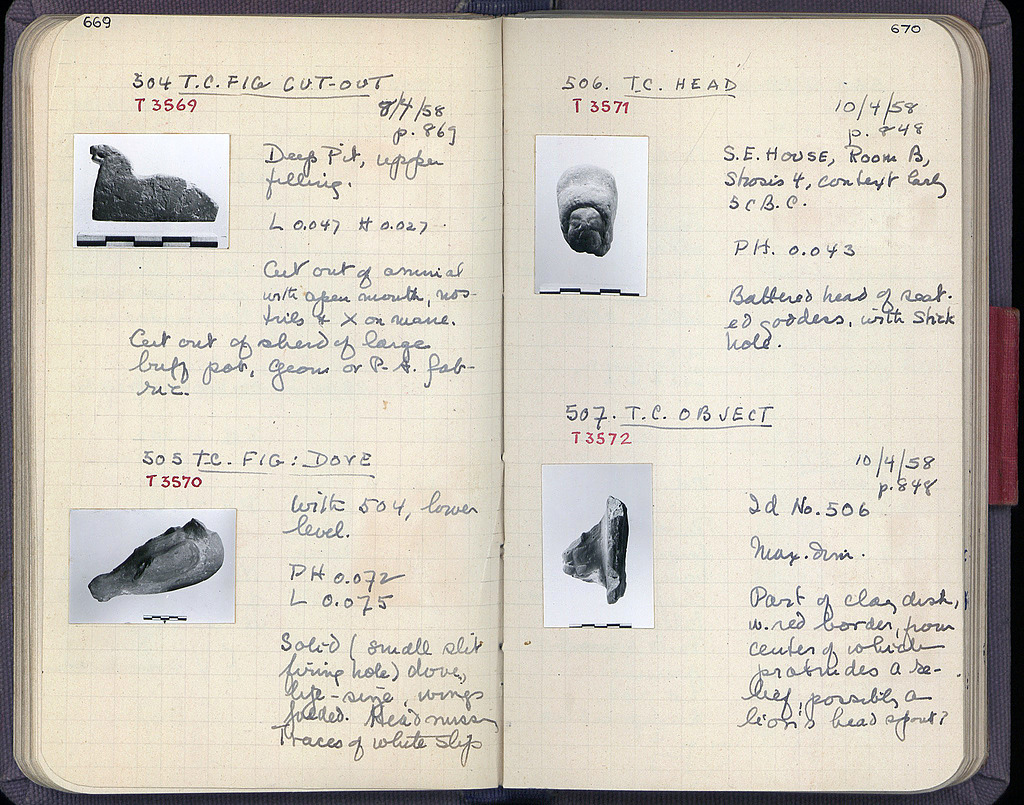 669
504 T.C. FIG CUT-OUT
T 3569
8/4/58
p. 869
Deep Pit, upper
filling.
L 0.047 H 0.027
Cut out of animal
with open mouth, nos-
trils & X on mane.
Cut out of sherd of large
buff pot, Geom or P.A. fab-
ric.
505 T.C. FIG: DOVE
T 3570
With 504, lower
level.
PH 0.072
L 0.075
Solid (small slit
firing hole) dove,
life-size, wings
folded. Head missg
Traces of white slip
670
506. T.C. HEAD
T 3571
10/4/58
p. 848
S.E. HOUSE, Room B,
Strosis 4, context early
5 c B.C.
PH. 0.043
Battered head of seat-
ed goddess, with stick
hole.
507. T.C. OBJECT
T 3572
10/4/58
p. 848
Id No. 506
Max. dim.
Part of clay dish,
w. red border, from
center of which
protrudes a re-
lief, possibly a
lion's head spout?